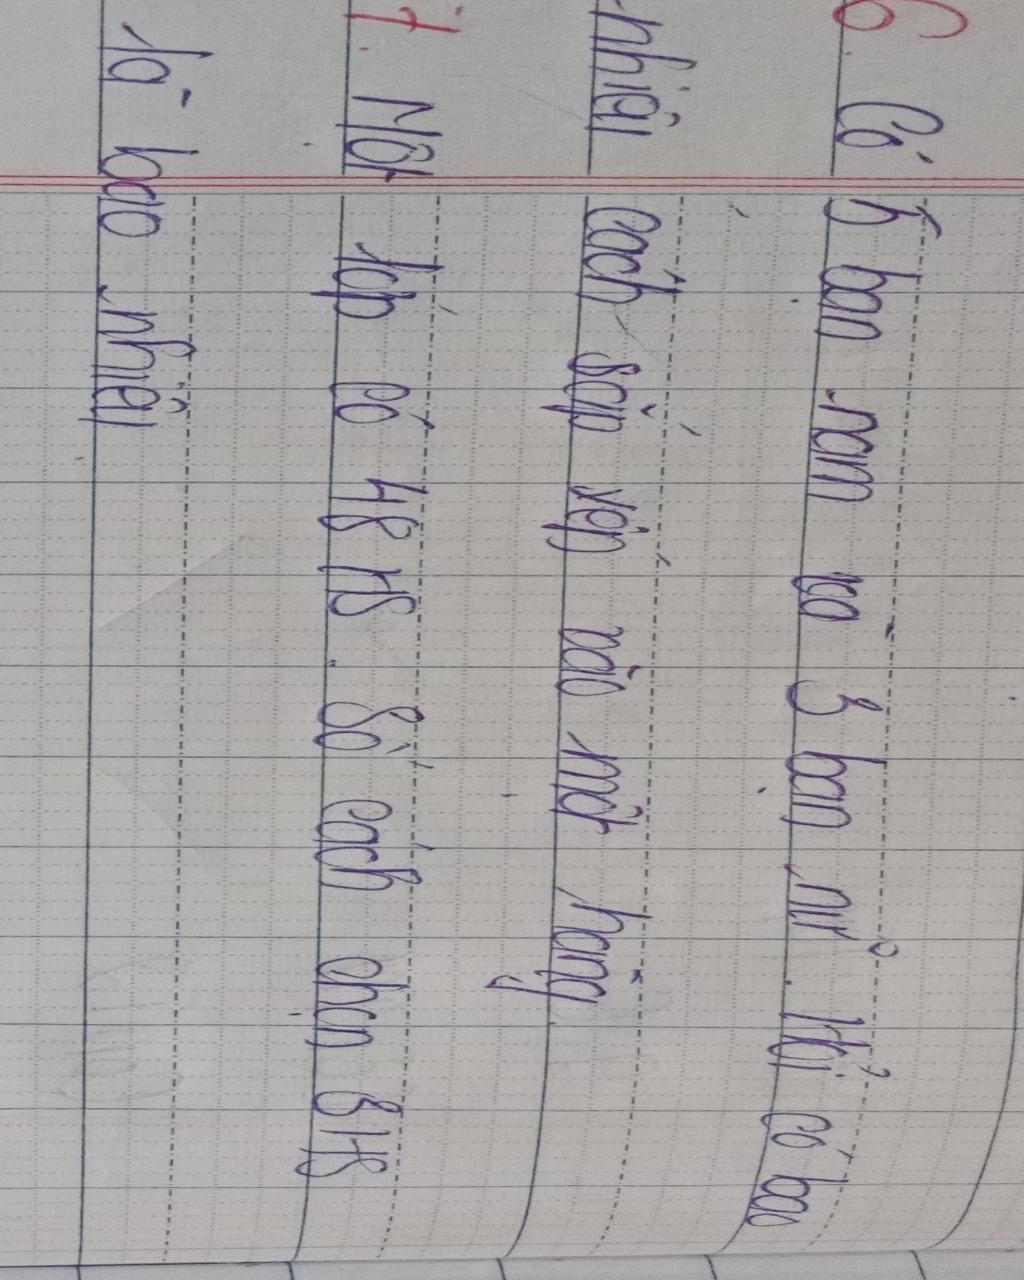 6. Có 5 bạn nam và 3 bạn nữ. Hỏi có bao
nhiêu cách sắp xếp vào một hàng.
7. Một lớp có 48 HS. Số cách chọn 8HS
là bao nhiêu